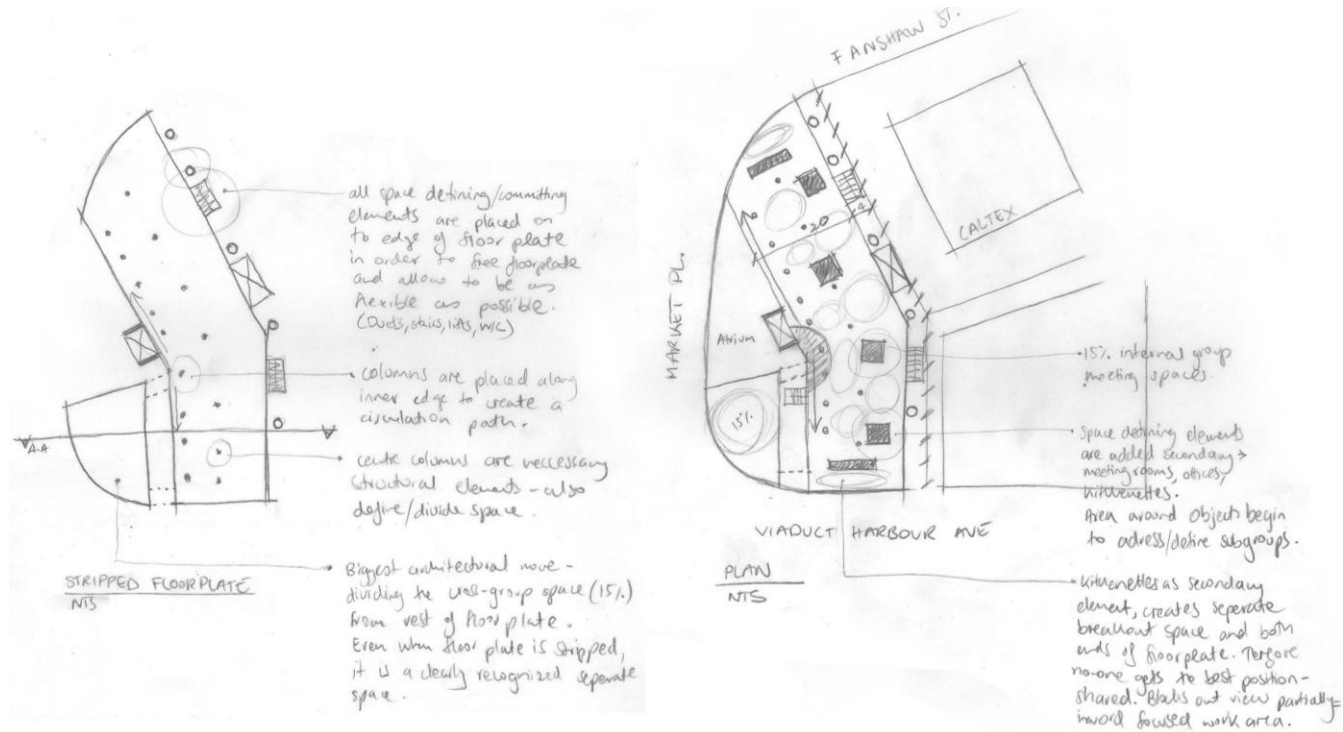 all space defining/committing
elements are placed on
to edge of floor plate
in order to free floorplate
and allow to be as
flexible as possible.
(Ducts, stairs, lifts, W/C)
columns are placed along
inner edge to create a
circulation path.
centr columns are neccessary
structural elements - also
define/divide space.
Biggest architectural move -
dividing the cross-group space (15%)
from rest of floor plate.
Even when floor plate is stripped,
it is a clearly recognized seperate
space.
A-A
STRIPPED FLOORPLATE
NTS
FANSHAW ST.
CALTEX
MARKET PL.
20
4
Atrium
15%
VIADUCT HARBOUR AVE
PLAN
NTS
15% internal group
meeting spaces.
Space defining elements
are added secondary →
meeting rooms, offices,
kitchenettes.
Area around objects begin
to adress/define subgroups.
Kitchenettes as secondary
element, creates seperate
breakout space and both
ends of floorplate. Terfore
no-one gets to best position -
shared. Blocks out view partially =
inword focused work area.